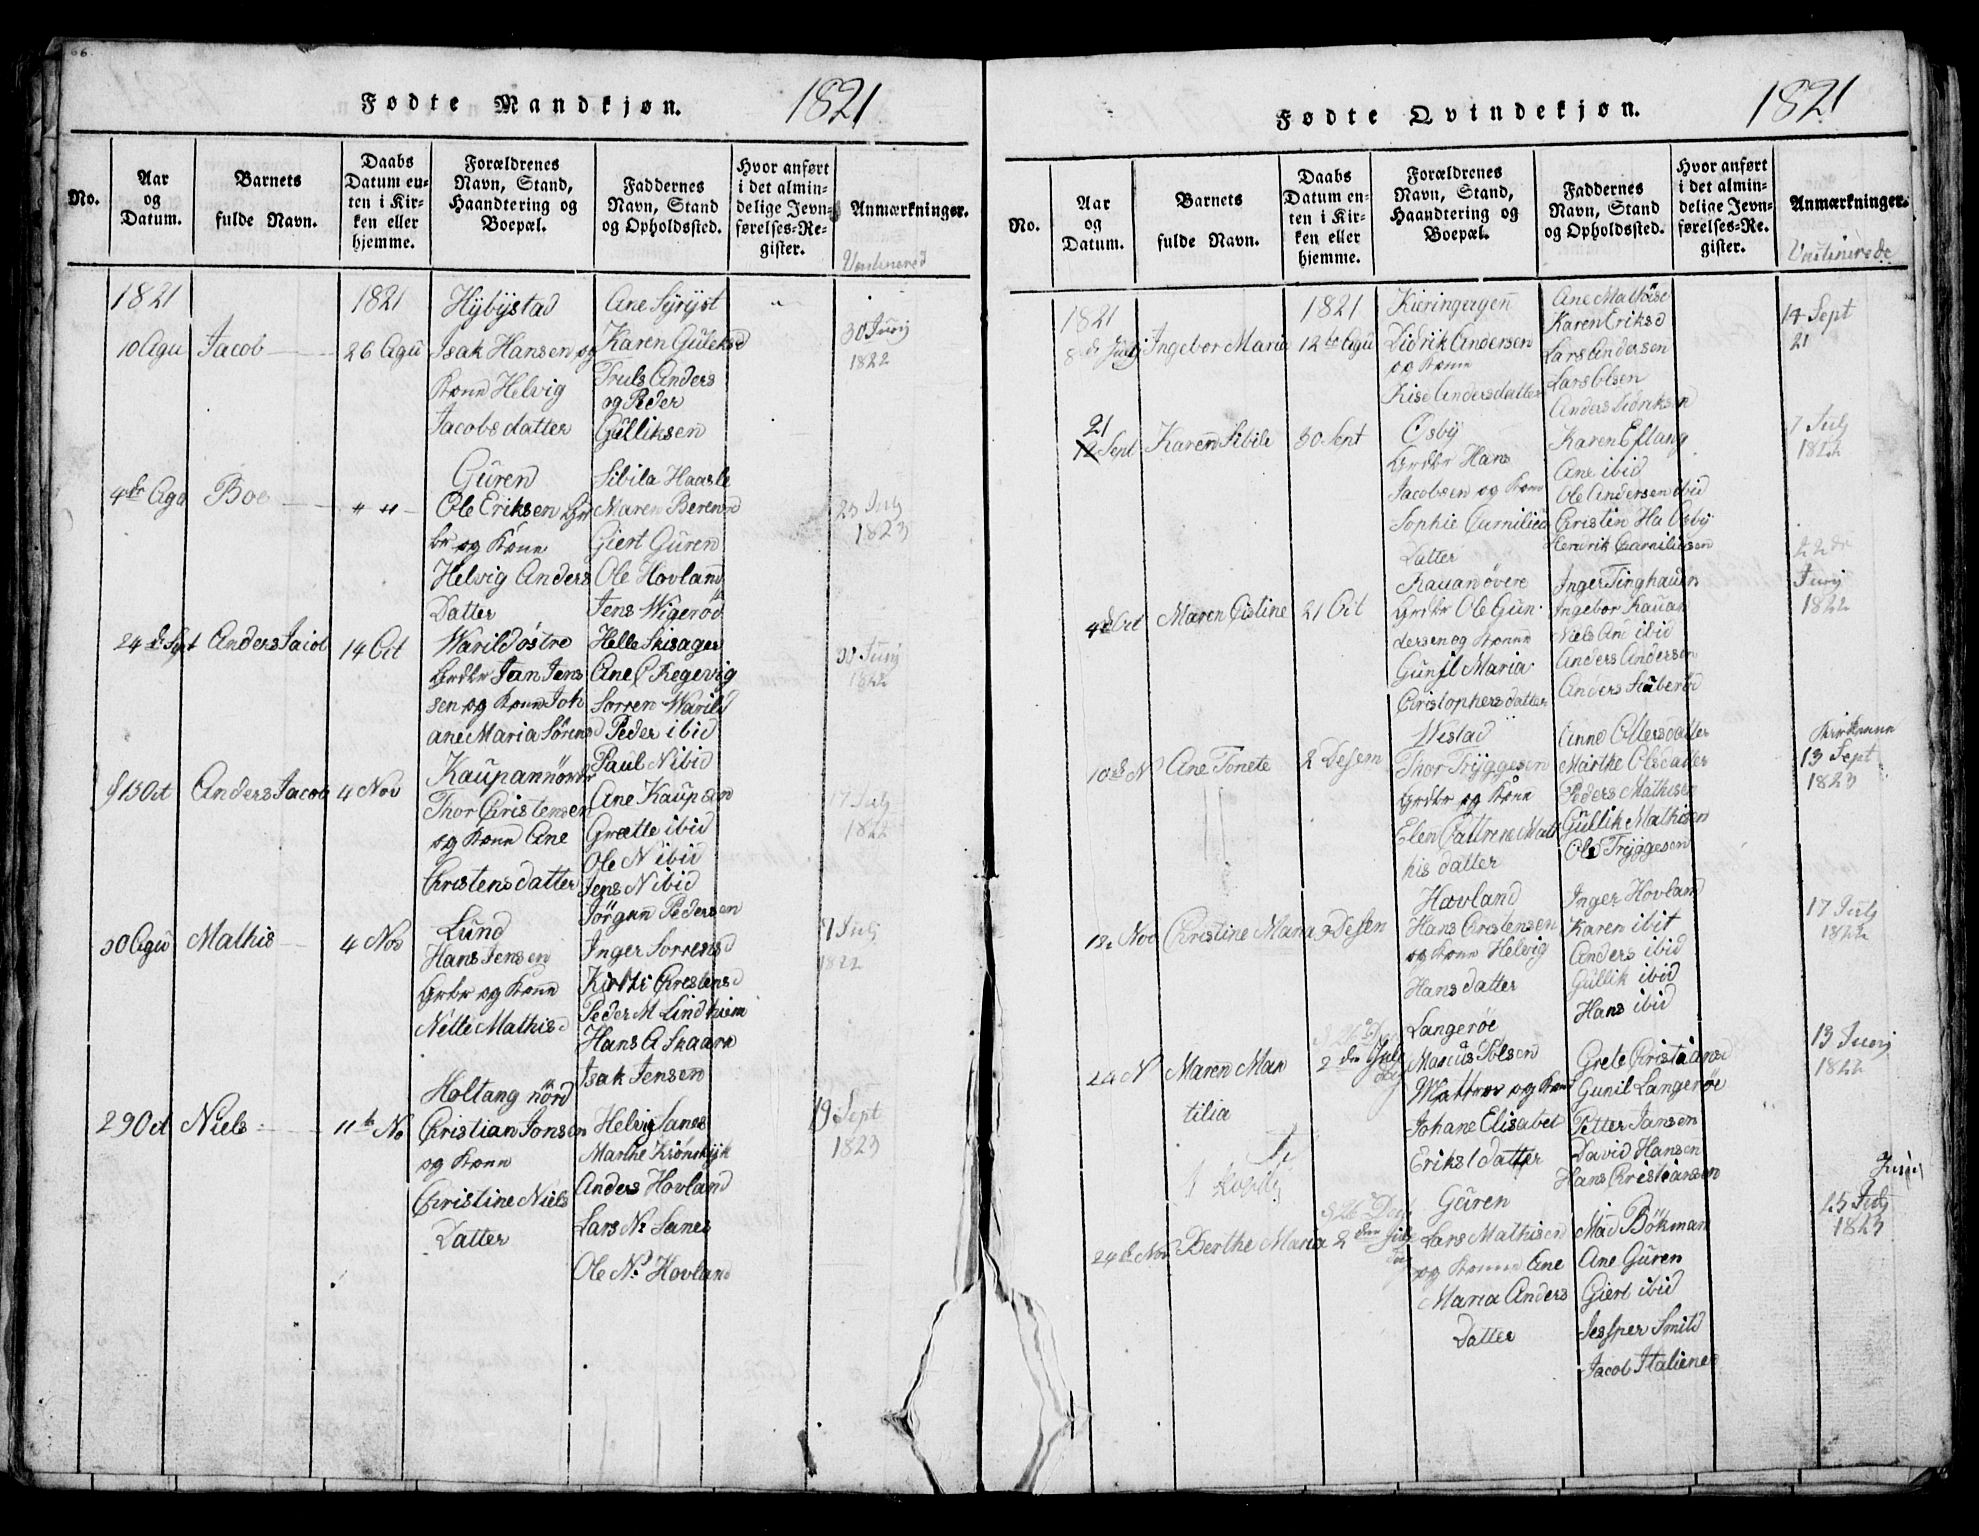 66.
Fødte Mandkjøn. 1821
No.
Aar
og
Datum.
Barnets
fulde Navn.
Daabs
Datum en-
ten i Kir-
ken eller
hjemme.
Forældrenes
Navn, Stand,
Haandtering og
Boepæl.
Faddernes
Navn, Stand
og Opholdssted.
Hvor anført
i det almin-
delige Jevn-
førelses-Re-
gister.
Anmærkninger.
1821
10 Agu
Jacob
1821
26 Agu
Hybystad
Isak Hansen og
Kone Helvig
Jacobsdatter
Ane Syryst
Karen Guleksd
Truls Anders
og Peder
Gulliksen
1822
Boe
Guren
Ole Eriksen Gr
br og Kone
Helvig Anders
Datter
Sibila Haasle
Maren Berensd
Giert Guren
Ole Hovland
Jens Wigerød
23 July
1823
24 de Sept
Anders Jacob
14 Oct
Warild østre
Grdbr Jan Jens
sen og Kone Joh
ane Maria Sørensd
Helle Skisager
Ane C Regevig
Sorren Warild
Peder ibid
Paul N ibid
1822
13 Oct
Anders Jacob
4 Nov
Kaupannordr
Thor Cristensen
og Kone Ane
Christensdatter
Ane Kaupan
Grætte ibid
Ole N ibid
Jens N ibid
Jørgan Pedersen
17 July
1822
30 Agu
Mathis
4 Nov
Lund
Hans Jensen
Grbr og Kone
Nelle Mathisd
Inger Sorrensd
Cristensd
Peder M Lindhiem
Hans A Skaarn
Isak Jensen
7 July
1822
29 Oct
Niels
11te No
Holtang nörd
Christian Jonsen
og Kone
Christine Niels
Datter
Helvig Sanes
Marthe
Anders Hovland
Lars N: Sanes
Ole N: Hovland
19 Sept
1823
Fødte Qvindekjøn. 1821
No.
Aar
og
Datum.
Barnets
fulde Navn.
Daabs
Datum en-
ten i Kir-
ken eller
hjemme.
Forældrenes
Navn, Stand,
Haandtering og
Boepæl.
Faddernes
Navn, Stand
og Opholdssted.
Hvor anført
i det almin-
delige Jevn-
førelses-Re-
gister.
Anmærkninger.
1821
8 de July
Ingebor Maria
1821
12te Agu
Didrik Andersen
og Kone
Kise Andersdatter
Ane Mathise
Karen Eriksd
Lars Andersen
Lars Olsen
Anders Didriksen
14 Sept
21
21
12 Sept
Karen Sibile
30 Sept
Osby
Grdbr Hans
Jacobsen og Kone
Sophie Carnilies
Datter
Karen Eftang
Ane ibid
Ole Andersen ibid
Christin Ha Osby
Henrik Carniliusen
7 July
1822
4de Oct
Maren Cistine
21 Oct
Kauan øvere
Grdbr Ole Gun-
dersen og Kone
Gunil Maria
Cristophersdatter
Inger Tinghaun
Ingebor Kauan
Niels Ane ibid
Anders Andersen
Anders Haberød
22 de
1822
10de N
Ane Tonete
2 Desem
Westad
Thor Tryggesen
Grdbr og Kone
Elen Catrine Matt
his datter
Anne Ollersdatter
Marthe Olsdatter
Peders Mathisen
Gullik Mathisen
Ole Tryggesen
13 Sept
1823
18 Nov
Christine Maria
2 Desem
Hovland
Hans Cristensen
og Kone Helvig
Hans datter
Inger Hovland
Karen ibit
Anders ibid
Gullik ibid
Hans ibid
17 July
1822
24 N
Maren Man
tilia
2 den Jule
Dag
Langerøe
Marcus Tolsen
Mattros og Kone
Johane Elisabet
Eriks datter
Grete Cristiansd
Gunil Langerøe
Petter Jansen
David Hansen
Hans Cristiansen
1822
24de Nov
Berthe Maria
2 den Jule
Dag
Guren
Lars Mathisen
og Kone Ane
Maria Anders
Datter
Mad Bökman
Ane Guren
Giert ibid
Jesper Smitd
Jacob Italiener
1823